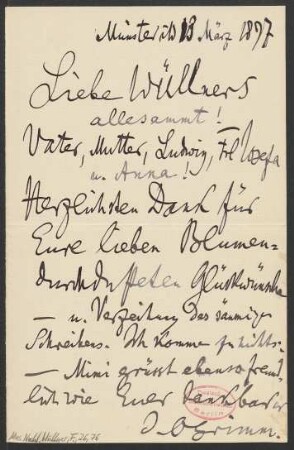 Münster i/W 13 März 1897
Liebe Wüllners
allesammt!
Vater, Mutter, Ludwig, Frl Josefa
u. Anna!
Herzlichsten Dank für
Eure lieben Blumen-
durchdufteten Glückwünsche
— u. Verzeihung des säumigen
Schreibens. Ich komme zu nichts.
— Mimi grüsst ebenso freund-
lich wie Euer dankbarer
J. O Grimm.
Berlin
Mus. Nachl. Wüllner, F., 26, 76